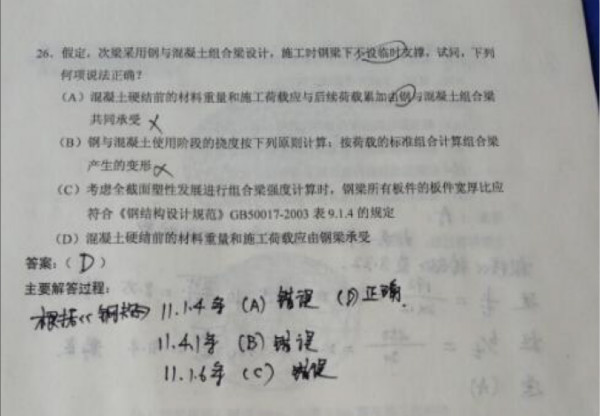 26．假定，次梁采用钢与混凝土组合梁设计，施工时钢梁下不设临时支撑，试问，下列
何项说法正确？
（A）混凝土硬结前的材料重量和施工荷载应与后续荷载累加由钢与混凝土组合梁
共同承受 ×
（B）钢与混凝土使用阶段的挠度按下列原则计算：按荷载的标准组合计算组合梁
产生的变形 ×
（C）考虑全截面塑性发展进行组合梁强度计算时，钢梁所有板件的板件宽厚比应
符合《钢结构设计规范》GB50017-2003 表 9.1.4 的规定
（D）混凝土硬结前的材料重量和施工荷载应由钢梁承受
答案：（ D ）
主要解答过程：
根据《钢规》11.1.4条 (A) 错误 (D) 正确.
11.4.1条 (B) 错误
11.1.6条 (C) 错误